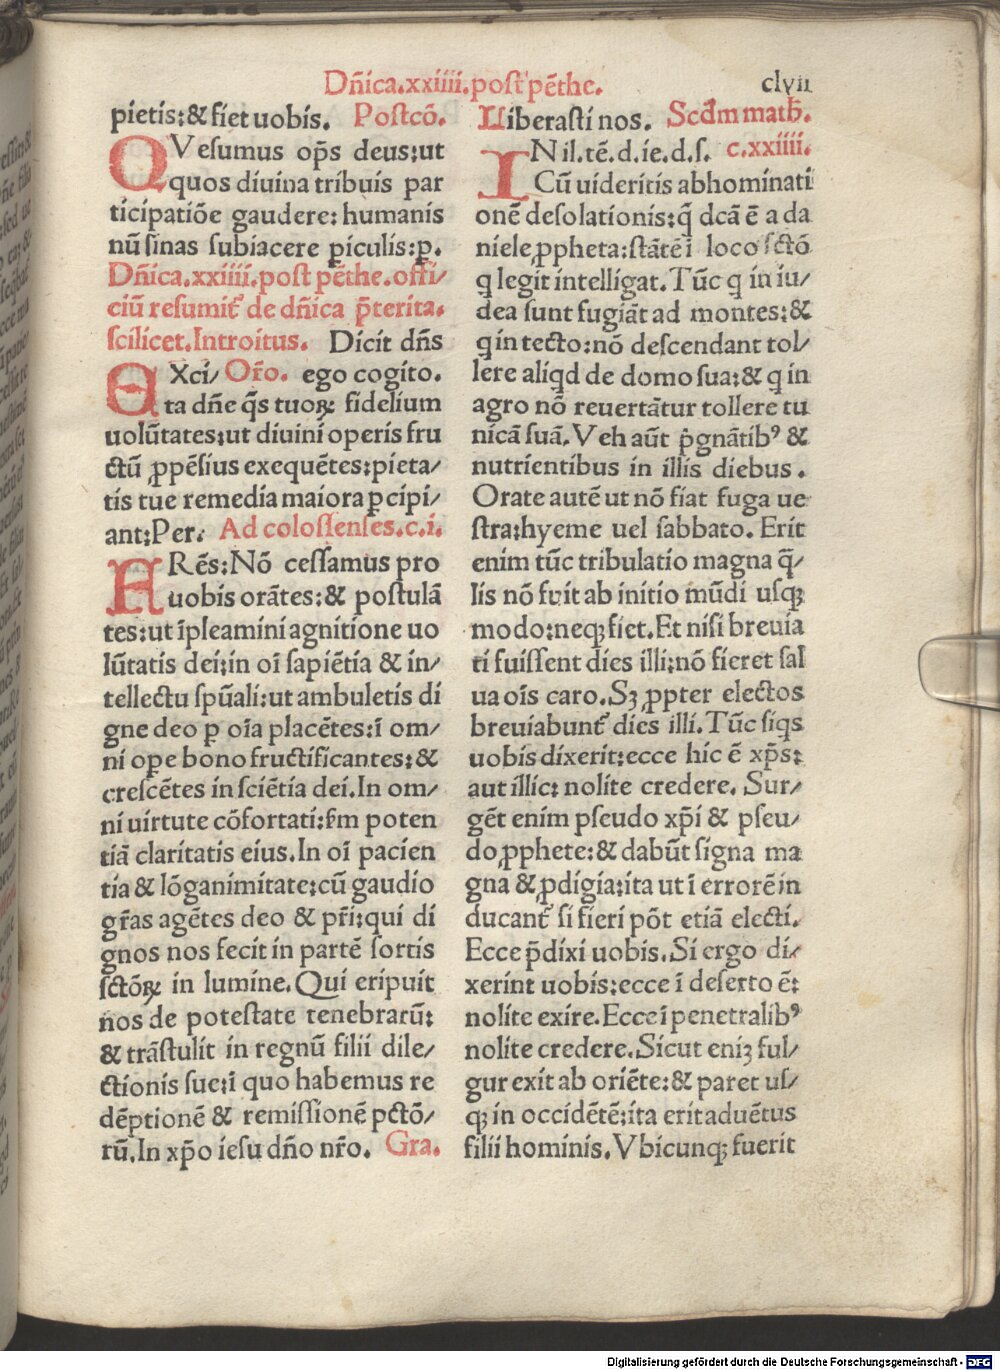 Dñica.xxiiii.post pēthe.
clvii
pietis:&fiet uobis. Postcō.
QVesumus op̄s deus:ut
quos diuina tribuis par
ticipatiōe gaudere: humanis
nū sinas subiacere ꝑiculis:ꝑ.
Dñica.xxiiii.post pēthe.offi/
ciū resumit̄ de dñica p̄terita.
scilicet.Introitus. Dicit dñs
EXci/ Or̄o. ego cogito.
ta dñe q̄s tuoꝝ fidelium
uolūtates:ut diuini operis fru
ctū ꝓpēsius exequētes:pieta/
tis tue remedia maiora ꝑcipi/
ant:Per. Ad colossenses.c.i.
FRēs:Nō cessamus pro
uobis orātes:& postulā
tes:ut īpleamini agnitione uo
lūtatis dei:in oī sapiētia & in/
tellectu spūali:ut ambuletis di
gne deo ꝑ oīa placētes:ī om/
ni ope bono fructificantes:&
crescētes in sciētia dei.In om/
ni uirtute cōfortati:s̄m poten
tiā claritatis eius.In oī pacien
tia & lōganimitate:cū gaudio
gr̄as agētes deo & pr̄i:qui di
gnos nos fecit in partē sortis
sctōꝝ in lumine.Qui eripuit
nos de potestate tenebrarū:
& trāstulit in regnū filii dile/
ctionis sue:ī quo habemus re
dēptionē & remissionē pctō/
rū.In xp̄o iesu dño nr̄o. Gra.
Liberasti nos. Scd̄m math̄.
IN il.tē.d.ie.d.s. c.xxiiii.
Cū uideritis abhominati
onē desolationis:q̄ dcā ē a da
niele ꝓpheta:stātē ī loco sctō
q legit intelligat.Tūc q in iu/
dea sunt fugiāt ad montes:&
q in tecto:nō descendant tol/
lere aliqd de domo sua:& q in
agro nō reuertātur tollere tu
nicā suā.Veh aūt p̄gnātibꝰ &
nutrientibus in illis diebus.
Orate autē ut nō fiat fuga ue
stra:hyeme uel sabbato. Erit
enim tūc tribulatio magna q̄/
lis nō fuit ab initio mūdi usqꝫ
modo:neqꝫ fiet.Et nisi breuia
ti fuissent dies illi:nō fieret sal
ua oīs caro.Sꝫ ꝓpter electos
breuiabunt̄ dies illi.Tūc siqs
uobis dixerit:ecce hic ē xp̄s:
aut illic: nolite credere. Sur/
gēt enim pseudo xp̄i & pseu/
do ꝓphete:& dabūt signa ma
gna & ꝓdigia:ita ut ī errorē in
ducant̄ si fieri pōt etiā electi.
Ecce p̄dixi uobis.Si ergo di/
xerint uobis:ecce ī deserto ē:
nolite exire.Ecce ī penetralibꝰ
nolite credere.Sicut eniꝫ ful/
gur exit ab oriēte:& paret us/
qꝫ in occidētē:ita erit aduētus
filii hominis.Vbicunqꝫ fuerit
Digitalisierung gefördert durch die Deutsche Forschungsgemeinschaft - DFG